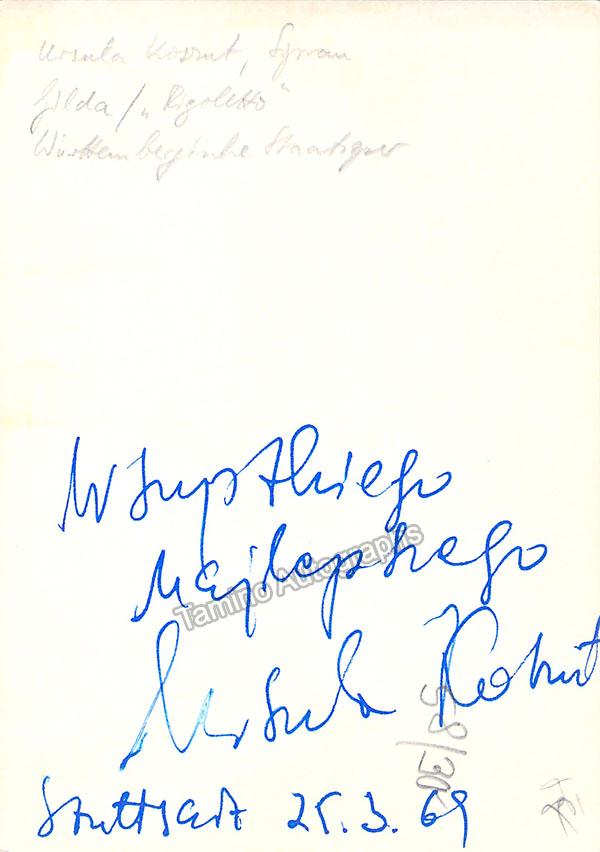 Ursula Koszut, Sopran
Gilda / „Rigoletto"
Württembergische Staatsoper
Wszystkiego
Najlepszego
Tamino Autographs
Ursula Koszut
58/30
Stuttgart 25.3.69